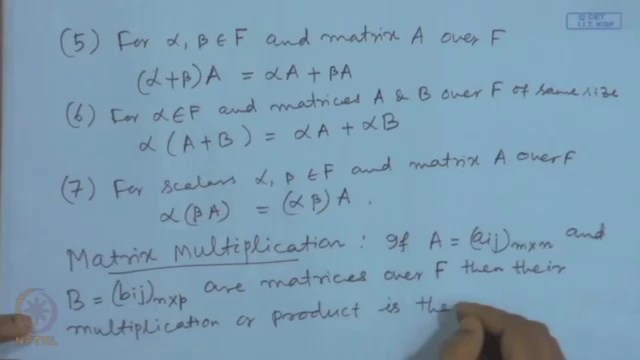 © CET
I.I.T. KGP
(5) For α, β ∈ F and matrix A over F
(α+β)A = αA + βA
(6) For α ∈ F and matrices A & B over F of same size
α (A + B) = αA + αB
(7) For scalars α, β ∈ F and matrix A over F
α(βA) = (αβ)A.
Matrix Multiplication : If A = (aij)m×n and
B = (bij)n×p are matrices over F then their
multiplication or product is the
NPTEL